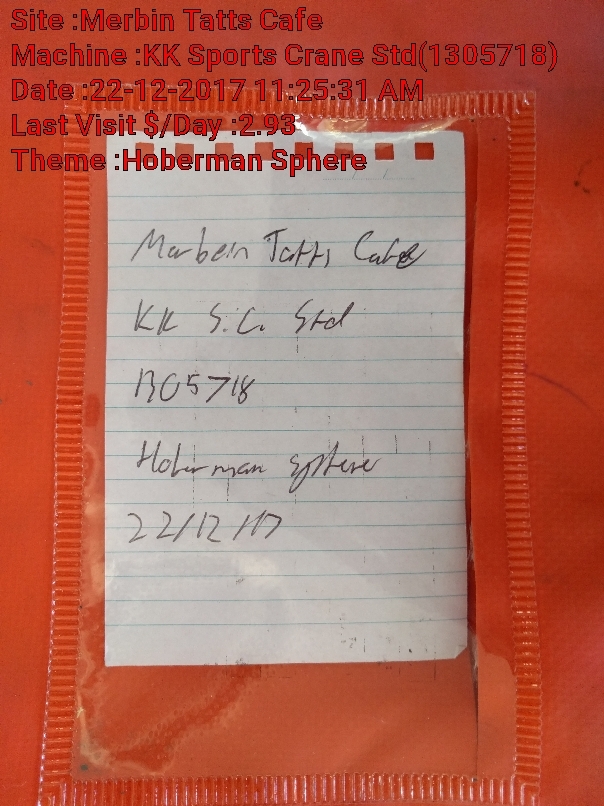 Site :Merbin Tatts Cafe
Machine :KK Sports Crane Std(1305718)
Date :22-12-2017 11:25:31 AM
Last Visit $/Day :2.93
Theme :Hoberman Sphere
Merbein Tatts Cafe
KK S.C. Std
1305718
Hoberman sphere
22/12/17